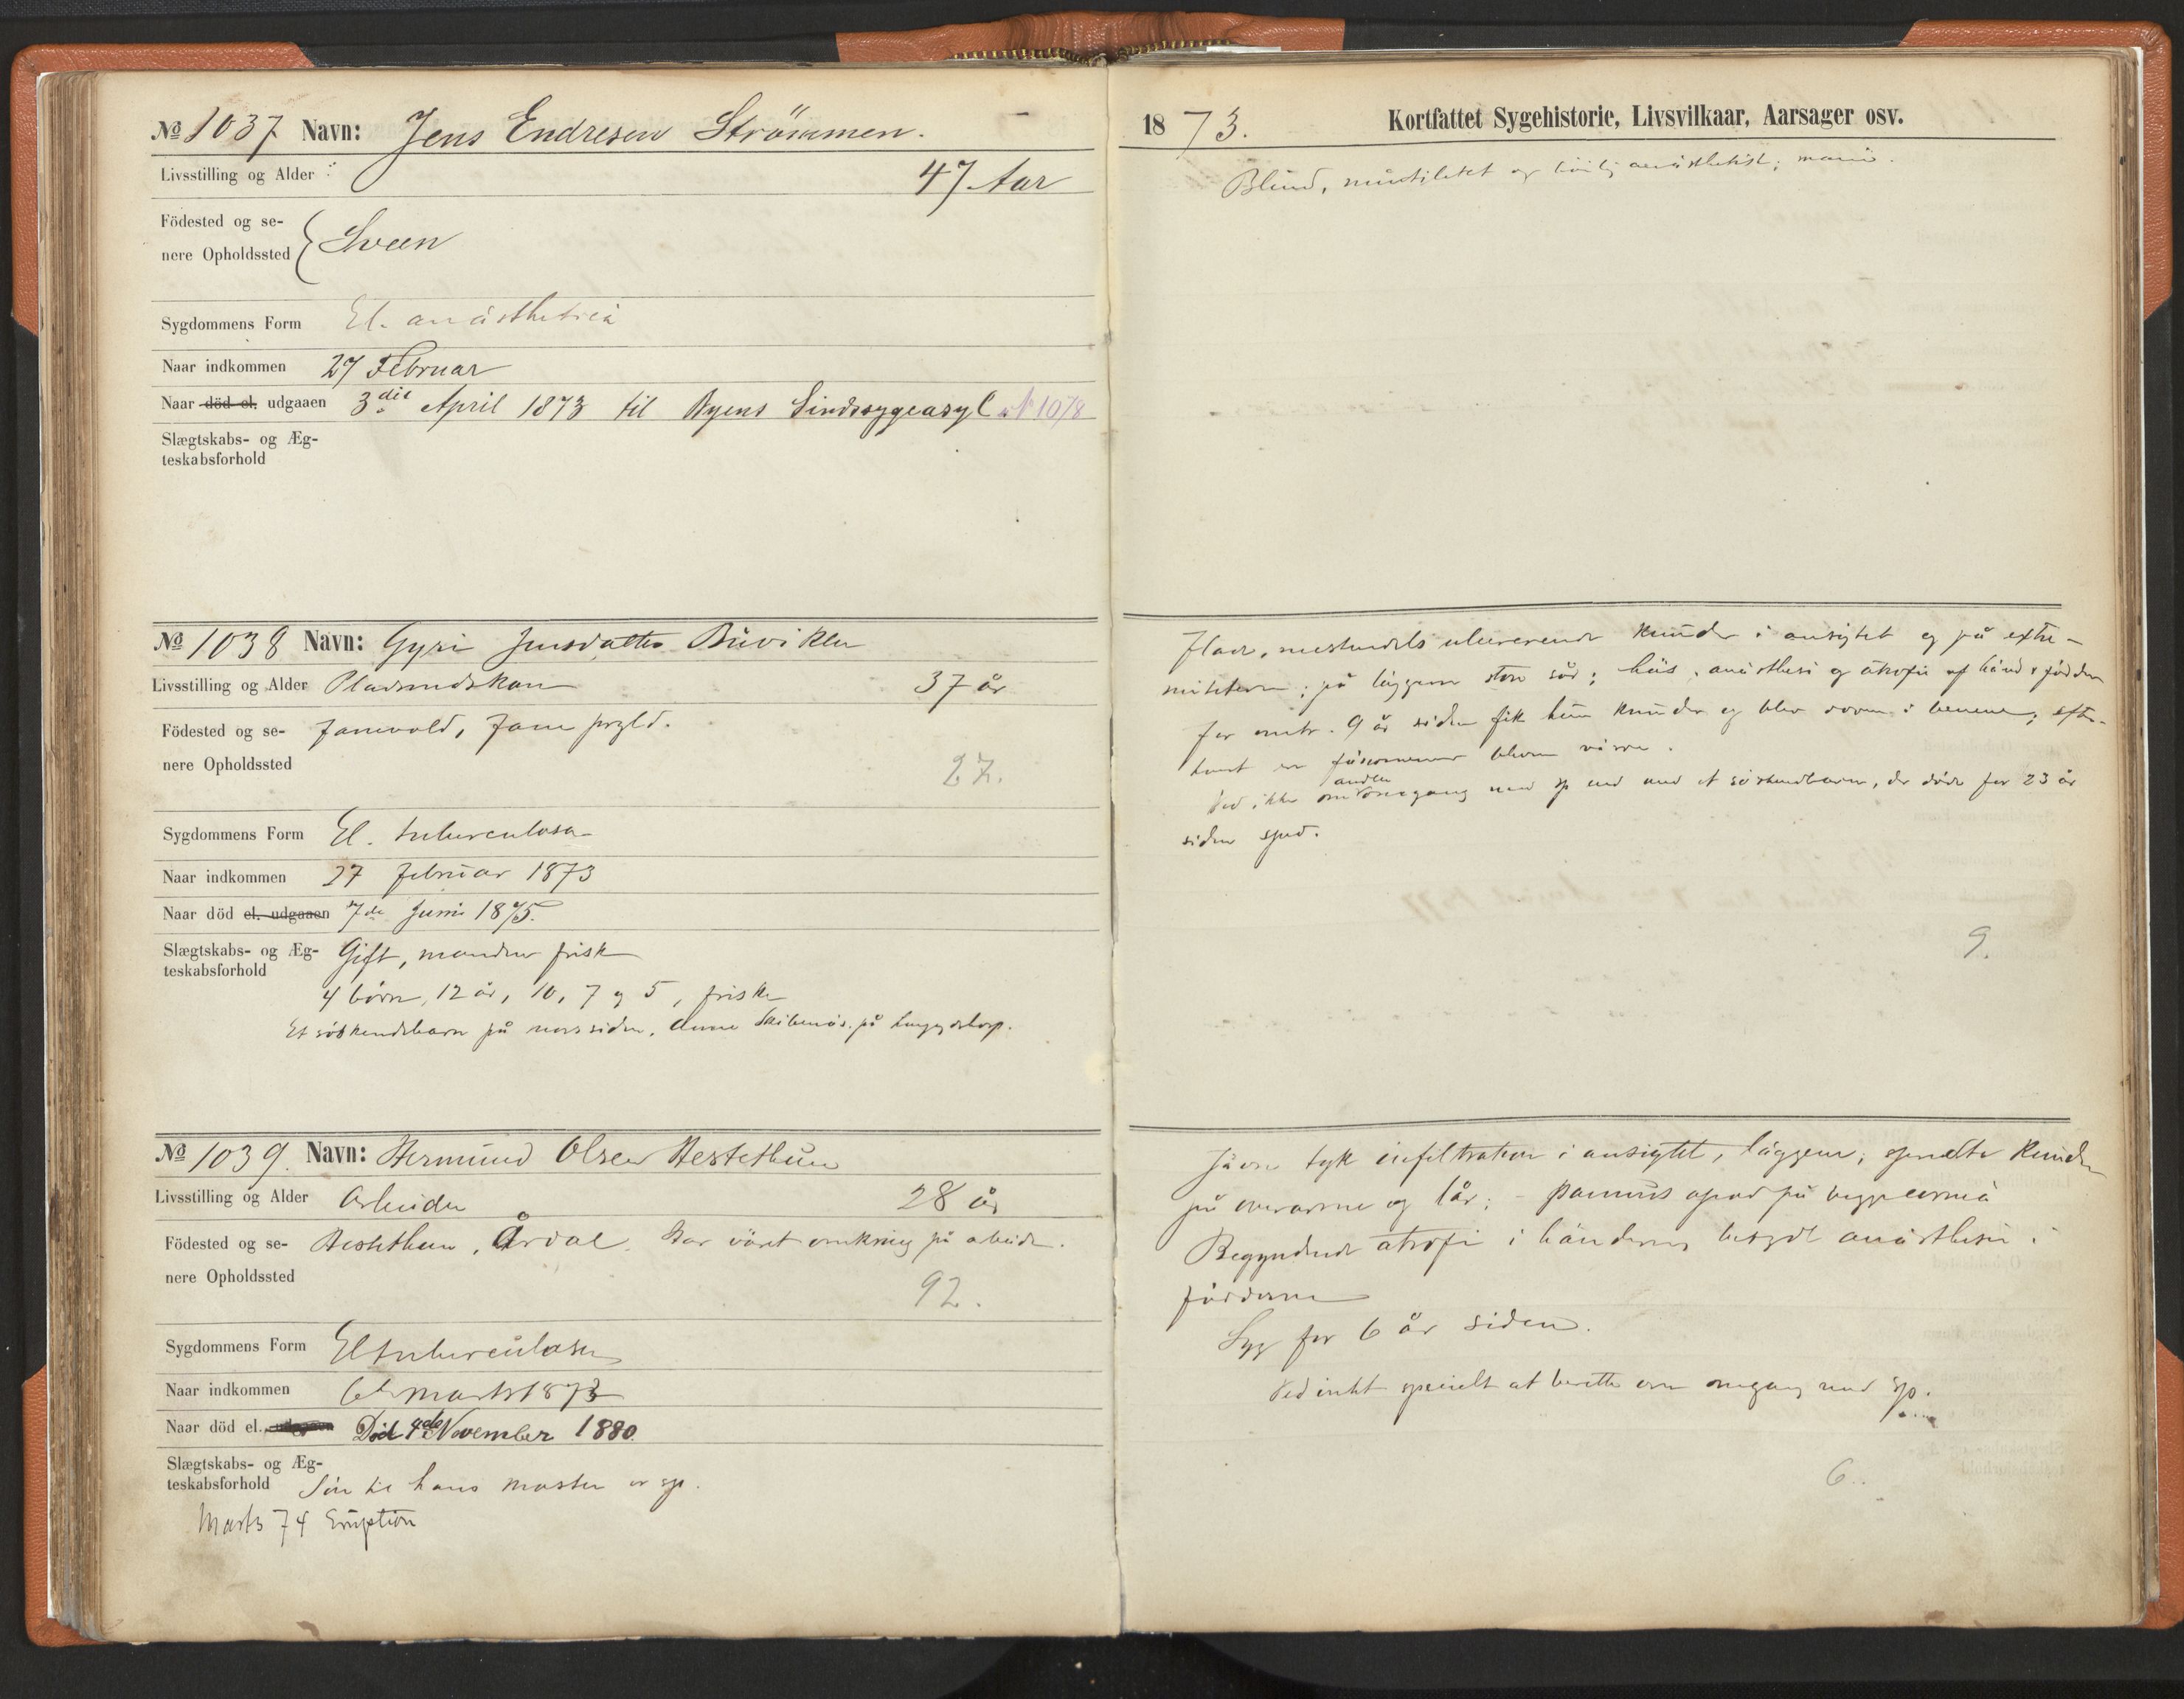 No 1037 Navn: Jens Endresen Strömmen.
Livsstilling og Alder 47 Aar
Födested og se-
nere Opholdssted Sveen
Sygdommens Form El. anästhetica
Naar indkommen 27 Februar
Naar död el. udgaaen 3die April 1873 til Byens Sindssygeasyl No 1078
Slægtskabs- og Æg-
teskabsforhold
No 1038 Navn: Gyri Jensdatter Buviken
Livsstilling og Alder Pladsmdskone 37 år
Födested og se- Fanevold, Fane prgld.
nere Opholdssted
27.
Sygdommens Form El. tuberculosa
Naar indkommen 27 februar 1873
Naar död el. udgaaen 7de Juni 1875.
Slægtskabs- og Æg- Gift, manden frisk
teskabsforhold
4 börn, 12 år, 10, 7 og 5, friske
Et södskendebarn på morssiden, på Lungegdshosp.
No 1039. Navn: Hermund Olsen Hestethun
Livsstilling og Alder Arbeider 28 år
Födested og se- Hestethun, Årdal. Har väret omkring på arbeide.
nere Opholdssted
92.
Sygdommens Form El tuberculosa
Naar indkommen 6te marts 1873
Naar död el. udgaaen Död 4de November 1880.
Slægtskabs- og Æg-
teskabsforhold Sön til hans moster er sp.
Marts 74 Eruption
1873. Kortfattet Sygehistorie, Livsvilkaar, Aarsager osv.
Blind, mutileret og anästhetisk; mani.
Flade, mestendels ulcererende knuder i ansigtet og på extre-
miteterne; på läggene store sår; häs, anästhesi og atrofi af händer & födder
for omtr. 9 år siden fik hun knuder og blev doven i benene; efter-
hvert er blevne värre.
Ved ikke om anden omgang med sp end med et söskendbarn, der döde for 23 år
siden sped.
9.
Jävn tyk infiltration i ansigtet, läggene; spredte knuder
på overarme og lår; pannus opad på begge cornea
Begyndende atrofi i händerne, betydl anästhesi i
födderne
Syg for 6 år siden.
Ved intet specielt at berette om omgang med sp.
6.